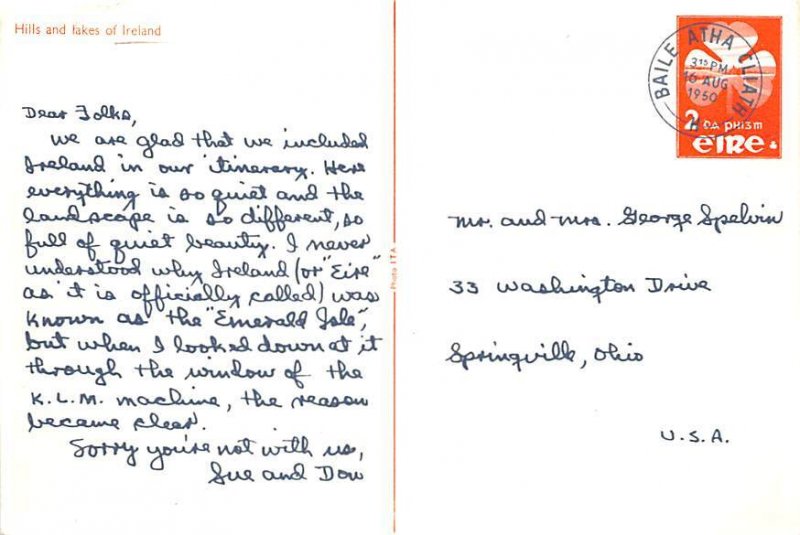 Hills and lakes of Ireland
Dear Folks,
We are glad that we included
Ireland in our itinerary. Here
everything is so quiet and the
landscape is so different, so
full of quiet beauty. I never
understood why Ireland (or "Eire"
as it is officially called) was
known as the "Emerald Isle",
but when I looked down at it
through the window of the
K.L.M. machine, the reason
became clear.
Sorry you're not with us,
Sue and Don
Photo ITA
BAILE ATHA CLIATH
3 15 PM
16 AUG
1960
2 DA PHISM
éIRe
Mr. and Mrs. George Spelvin
33 Washington Drive
Springville, Ohio
U.S.A.